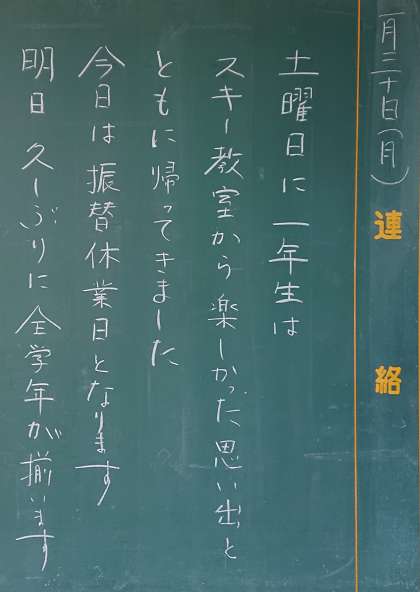 一月二十日(月)
連絡
土曜日に一年生は
スキー教室から楽しかった思い出と
ともに帰ってきました
今日は振替休業日となります
明日 久しぶりに全学年が揃います